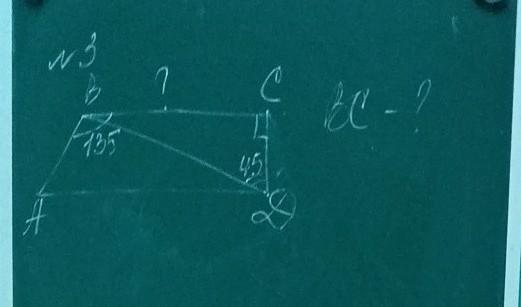 №3
B ? C
135
45
A D
BC - ?